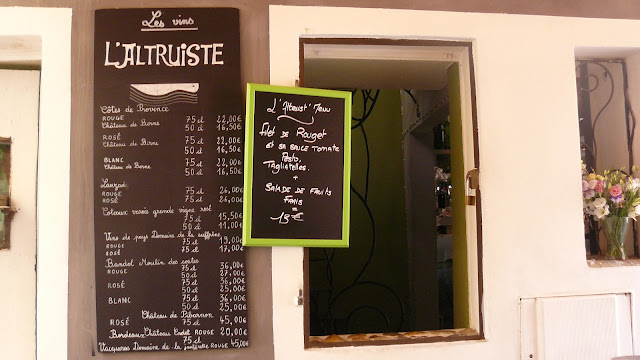 Les vins
L'ALTRUISTE
Côtes de Provence
ROUGE 75cl 22,00€
Château de Berne 50cl 16,50€
ROSÉ 75cl 22,00€
Château de Berne 50cl 16,50€
BLANC 75cl 22,00€
Château de Berne 50cl 16,50€
ROUGE 75cl 26,00€
ROSÉ 75cl 26,00€
Coteaux varois grande vigne rosé
75cl 15,50€
50cl 11,00€
Vins de pays Domaine de la
ROUGE 75cl 19,00€
ROSÉ 75cl 17,00€
Bandol Moulin des costes
ROUGE 75cl 36,00€
50cl 27,00€
ROSÉ 75cl 36,00€
50cl 25,00€
BLANC 75cl 36,00€
50cl 25,00€
Château de Pibarnon
ROSÉ 75cl 45,00€
Bordeaux Château Cadet ROUGE 20,00€
75cl
Vacqueras Domaine de la ROUGE 45,00€
L'Altruist' Menu
filet de Rouget
et sa sauce tomate
Pesto,
Tagliatelles.
+
SALADE DE FRUITS
FRAIS
=